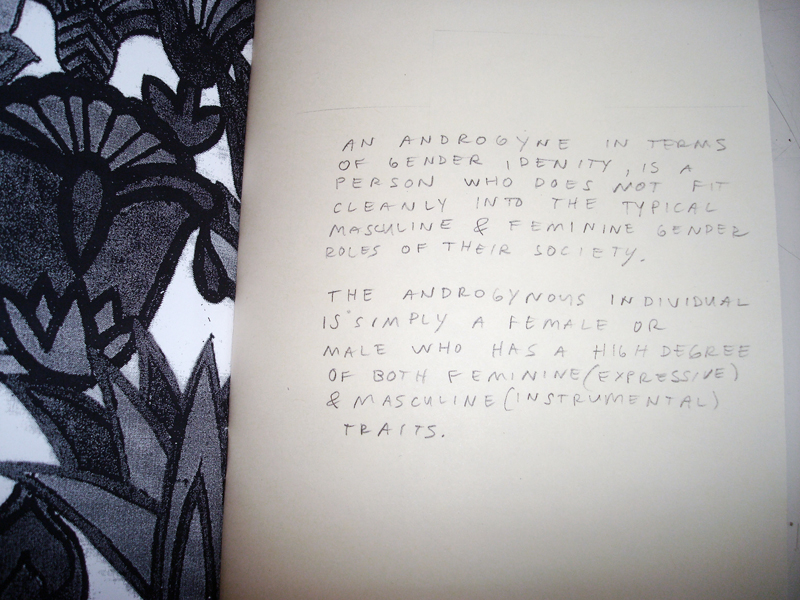 AN ANDROGYNE IN TERMS
OF GENDER IDENITY, IS A
PERSON WHO DOES NOT FIT
CLEANLY INTO THE TYPICAL
MASCULINE & FEMININE GENDER
ROLES OF THEIR SOCIETY.
THE ANDROGYNOUS INDIVIDUAL
IS SIMPLY A FEMALE OR
MALE WHO HAS A HIGH DEGREE
OF BOTH FEMININE (EXPRESSIVE)
& MASCULINE (INSTRUMENTAL)
TRAITS.